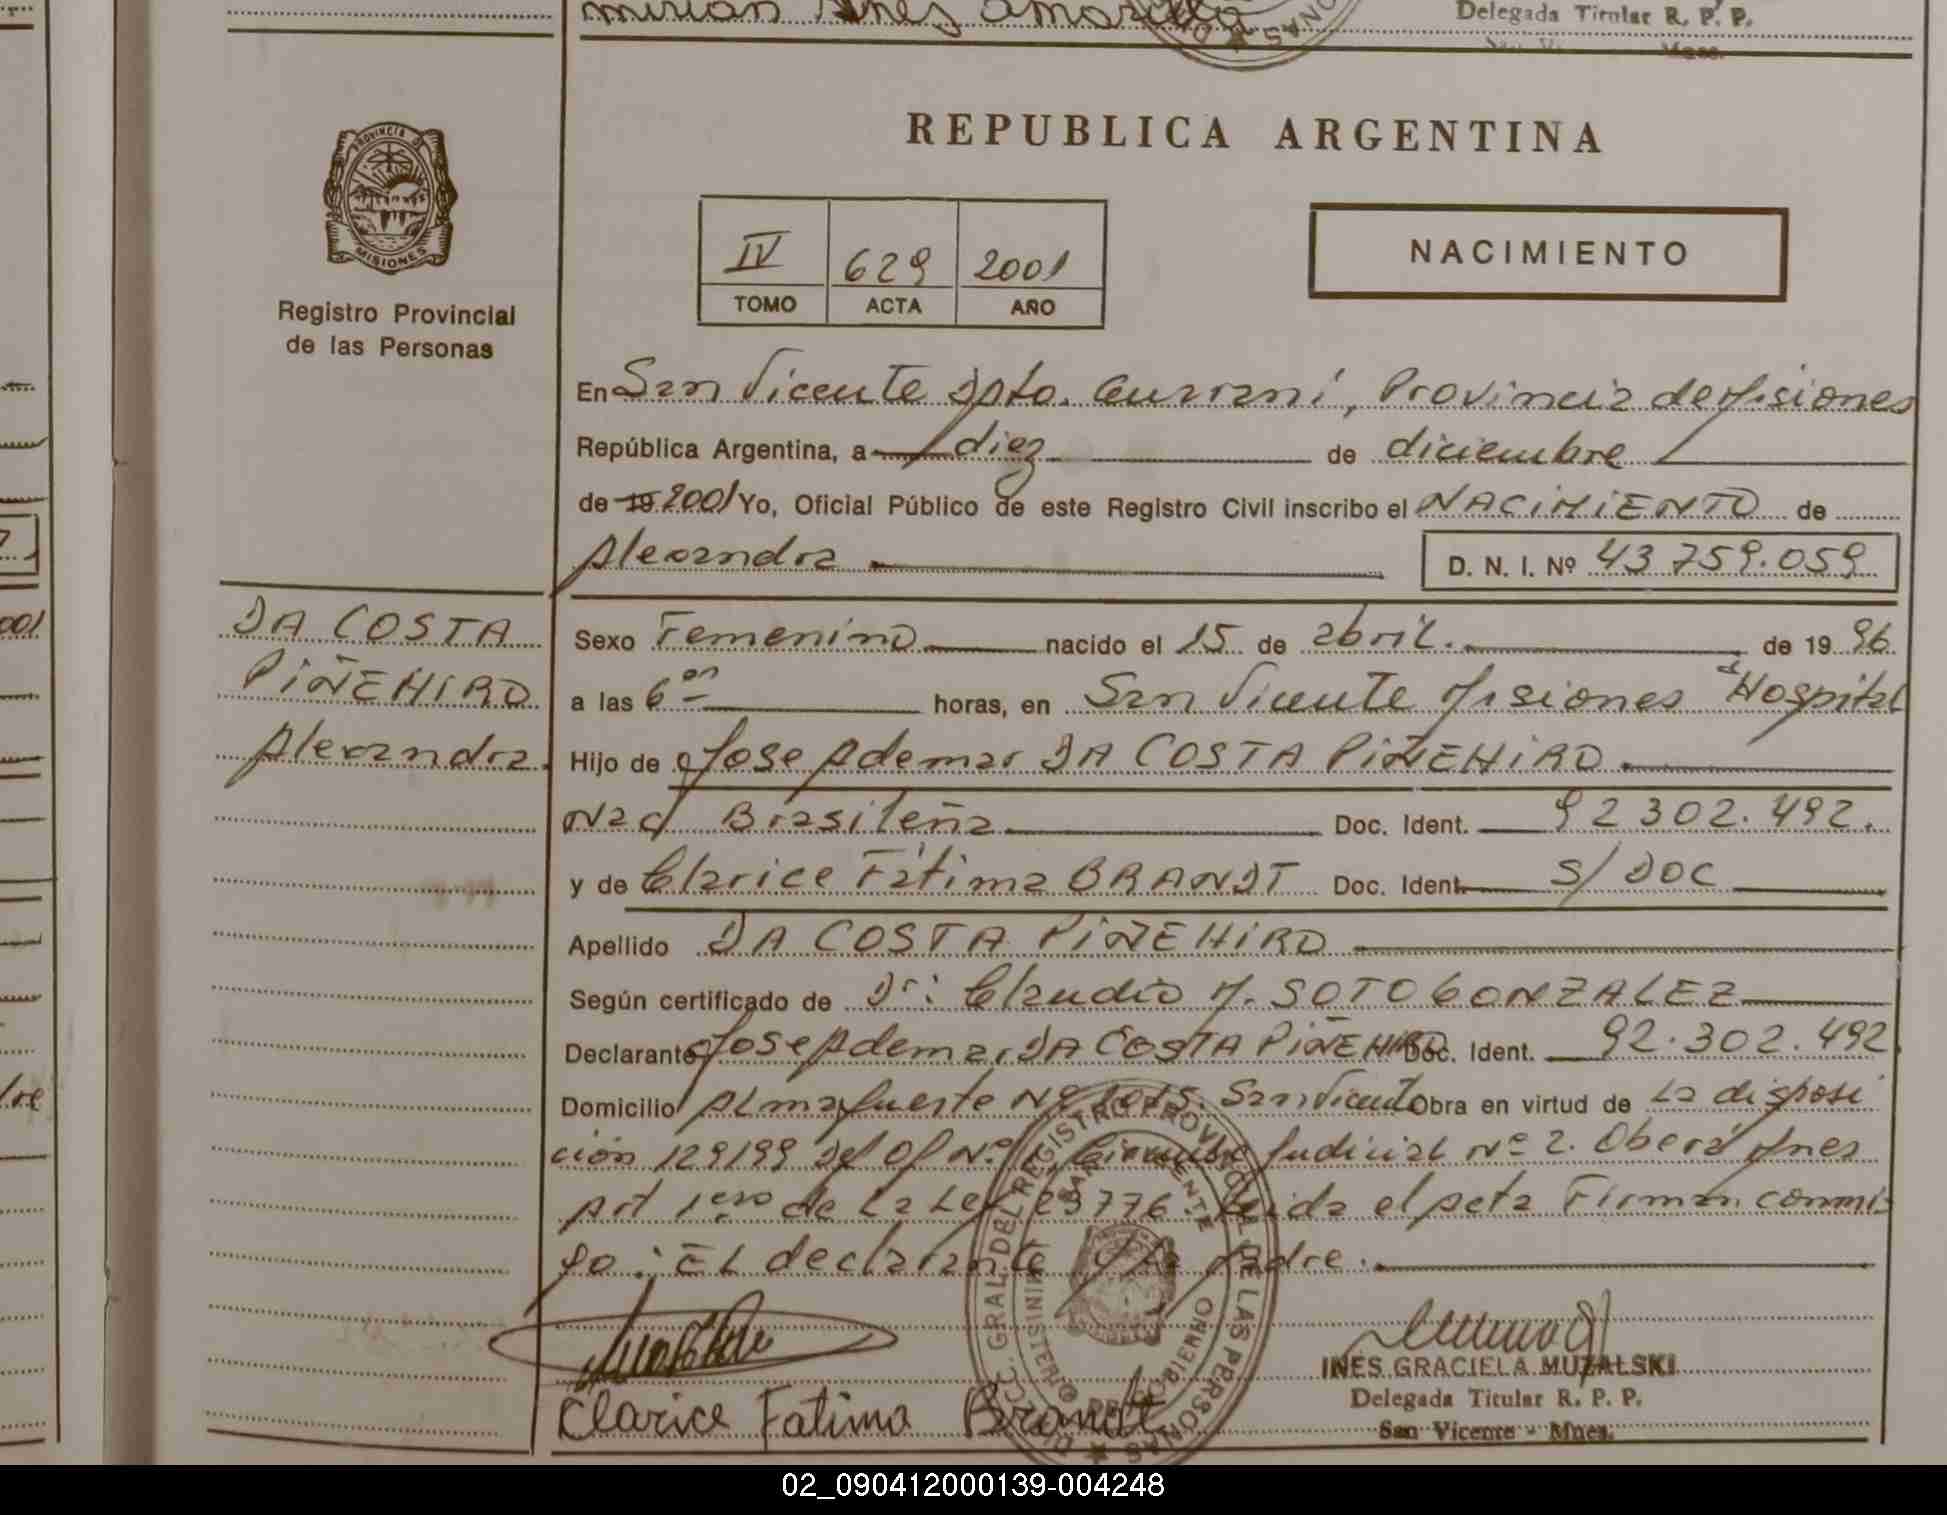 Mirian Ines Amarilla
Delegada Titular R. P. P.
REPUBLICA ARGENTINA
PROVINCIA DE MISIONES
Registro Provincial
de las Personas
IV 629 2001
TOMO ACTA AÑO
NACIMIENTO
En San Vicente Dpto. Guarani, Provincia de Misiones
República Argentina, a diez de diciembre
de 19 2001 Yo, Oficial Público de este Registro Civil inscribo el NACIMIENTO de
Alexandra D. N. I. Nº 43759.059
DA COSTA
PIÑEHIRO
Alexandra.
Sexo Femenino nacido el 15 de abril. de 19 96.
a las 6 horas, en San Vicente Misiones Hospital
Hijo de Jose Ademar DA COSTA PIÑEHIRO
Nac Brasileña Doc. Ident. 92302.492.
y de Clarice Fátima BRANDT Doc. Ident. S/DOC
Apellido DA COSTA PIÑEHIRO
Según certificado de Dr: Claudio M. SOTO GONZALEZ
Declarante Jose Ademar DA COSTA PIÑEHIRO Doc. Ident. 92.302.492
Domicilio Almafuerte Nº 1015. San Vicente Obra en virtud de La disposi
ción 129199 del Of Nº Judicial Nº 2. Oberá Mnes
Art 1ero de La Ley 23776. Leida el Acta Firman conmi
go: EL declarante y La Madre.
Clarice Fatima Brandt
INES GRACIELA MUZALSKI
Delegada Titular R. P. P.
San Vicente - Mnes.
02_090412000139-004248